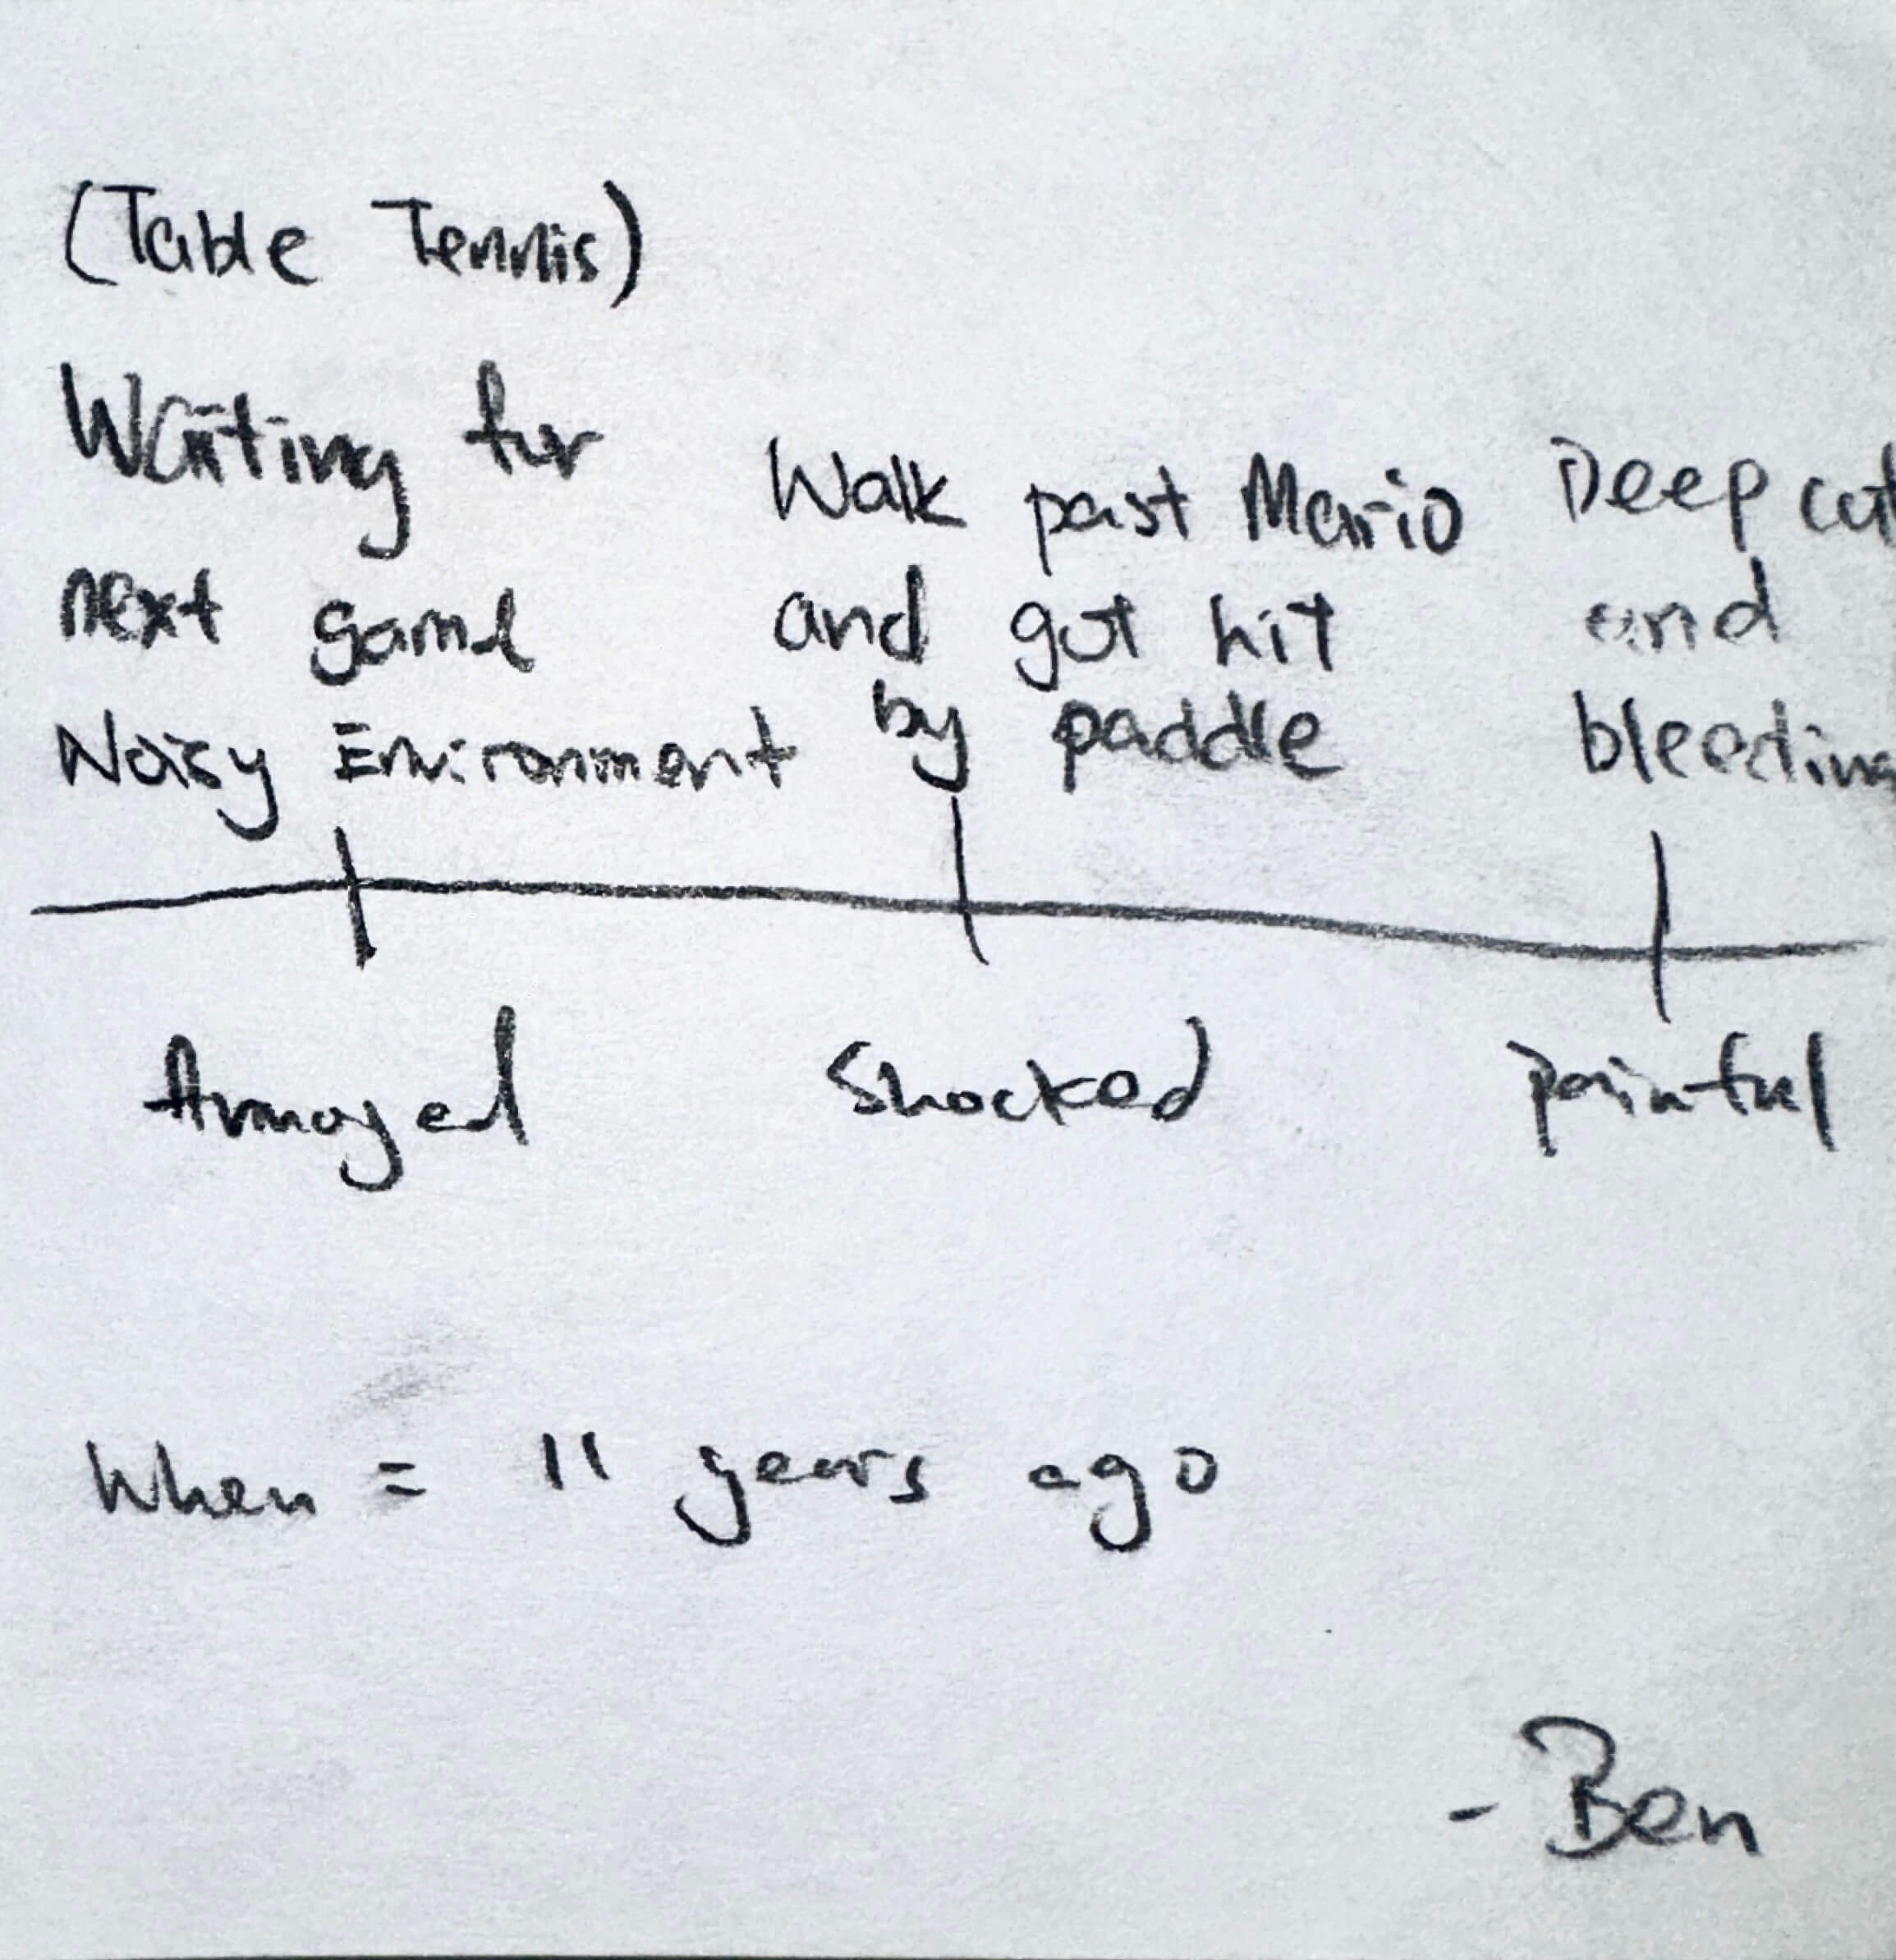 (Table Tennis)
Waiting for
next game
Noisy Environment
Walk past Mario
and got hit
by paddle
Deep cut
and
bleeding
Annoyed
Shocked
painful
When = 11 years ago
- Ben